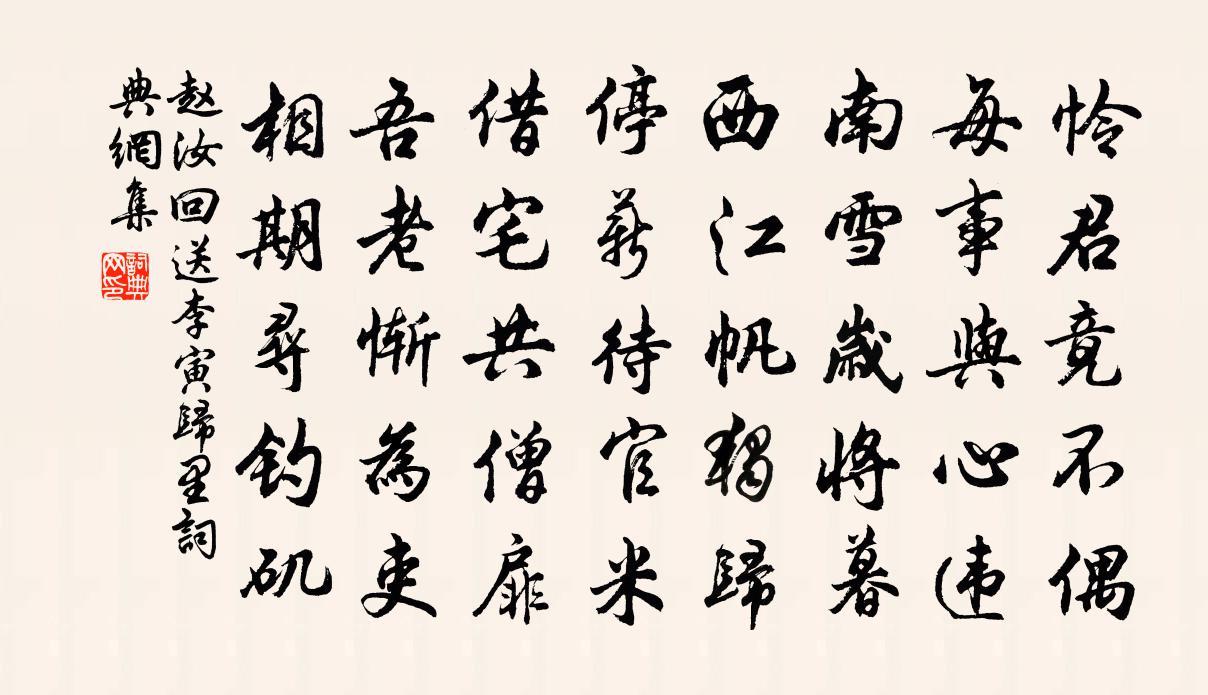 怜君竟不偶
每事與心违
南雪歲將暮
西江帆獨歸
停薪待官米
借宅共僧扉
吾老惭為吏
相期尋钓矶
赵汝回送李寅歸里詞
典網集
詞典
网印